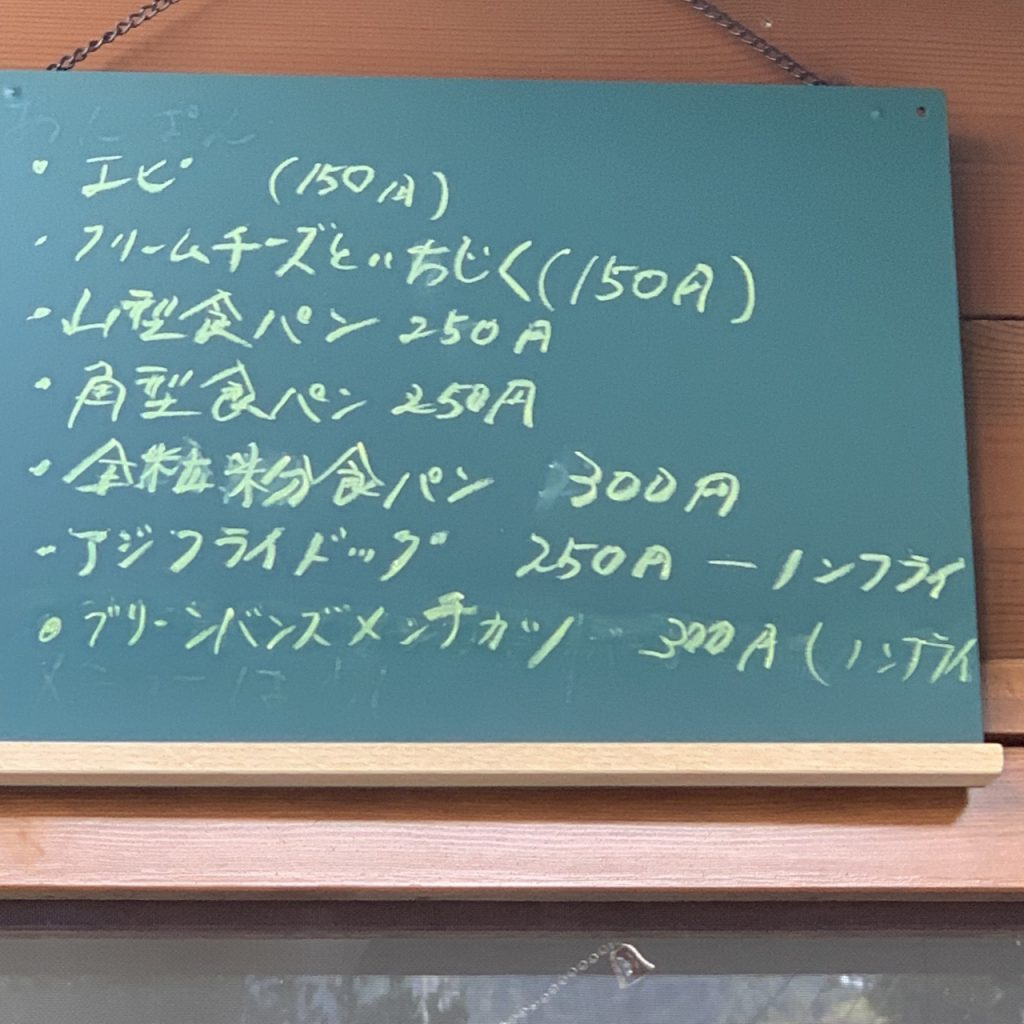 あんぱん
・エピ (150円)
・クリームチーズといちじく(150円)
・山型食パン 250円
・角型食パン 250円
・全粒粉食パン 300円
・アジフライドッグ 250円 ーノンフライ
・グリーンバンズメンチカツ 300円(ノンフライ